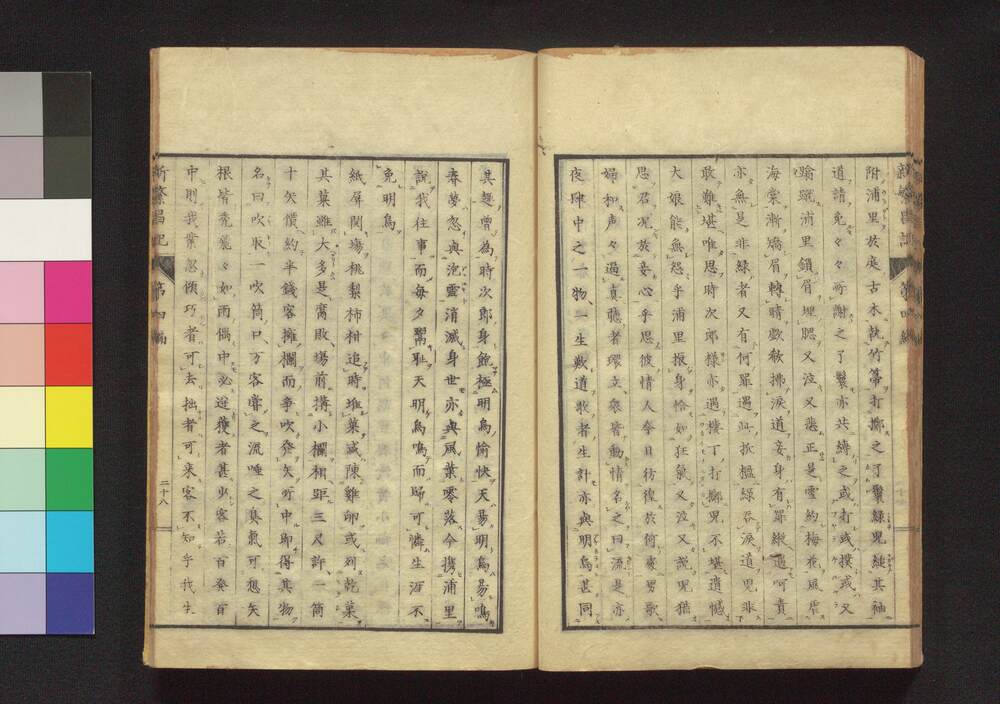 附浦里於庭古木執竹箒打擲之了鬟緑兒縋其袖
道請免々々所謝之了鬟亦共縛之或打或撲或又
浦里鎖眉埋腮又泣又悲正是雪約梅花風虐
海棠漸矯眉轉睛歔欷拂淚道妾身有罪繳遇呵責
亦無是非緑者又有何罪遇此折檻緑吞淚道兒非
敢難堪唯思時次郎樣亦過樓丁打擲兒不堪遺憾
大娘能無怨乎浦里振身恰如狂氣又泣又說兒猶
思君況於妾心乎思彼情人今日彷徨於何邊男歌
婦和聲々逼真聽者環立衆皆動情名之曰流是亦
夜肆中之一物一生數道歌者生計亦與明烏甚同
其趣曾為時次郎身飽極明烏愉快天易明烏易鳴
春夢忽與泡雪消滅身世亦與風葉零落今携浦里
說我往事而每夕翳耻天明烏鳴而歸可憐生涯不
免明烏
紙屏閧場桃梨柿柑追時堆菓盛陳雞卵或列乾菓
其菓雖大多是腐敗場前搆小欄相距三尺許一筒
十矢價約半錢客擁欄而爭吹發矢所中即得其物
名曰吹取一吹筒口万客嘗之流唾之臭氣可想矢
根皆禿發々如雨偶中必逆穫者甚少客若百發百
中則我業忽傾巧者可去拙者可來客不知乎我生
新繁昌記 第四編
二十八